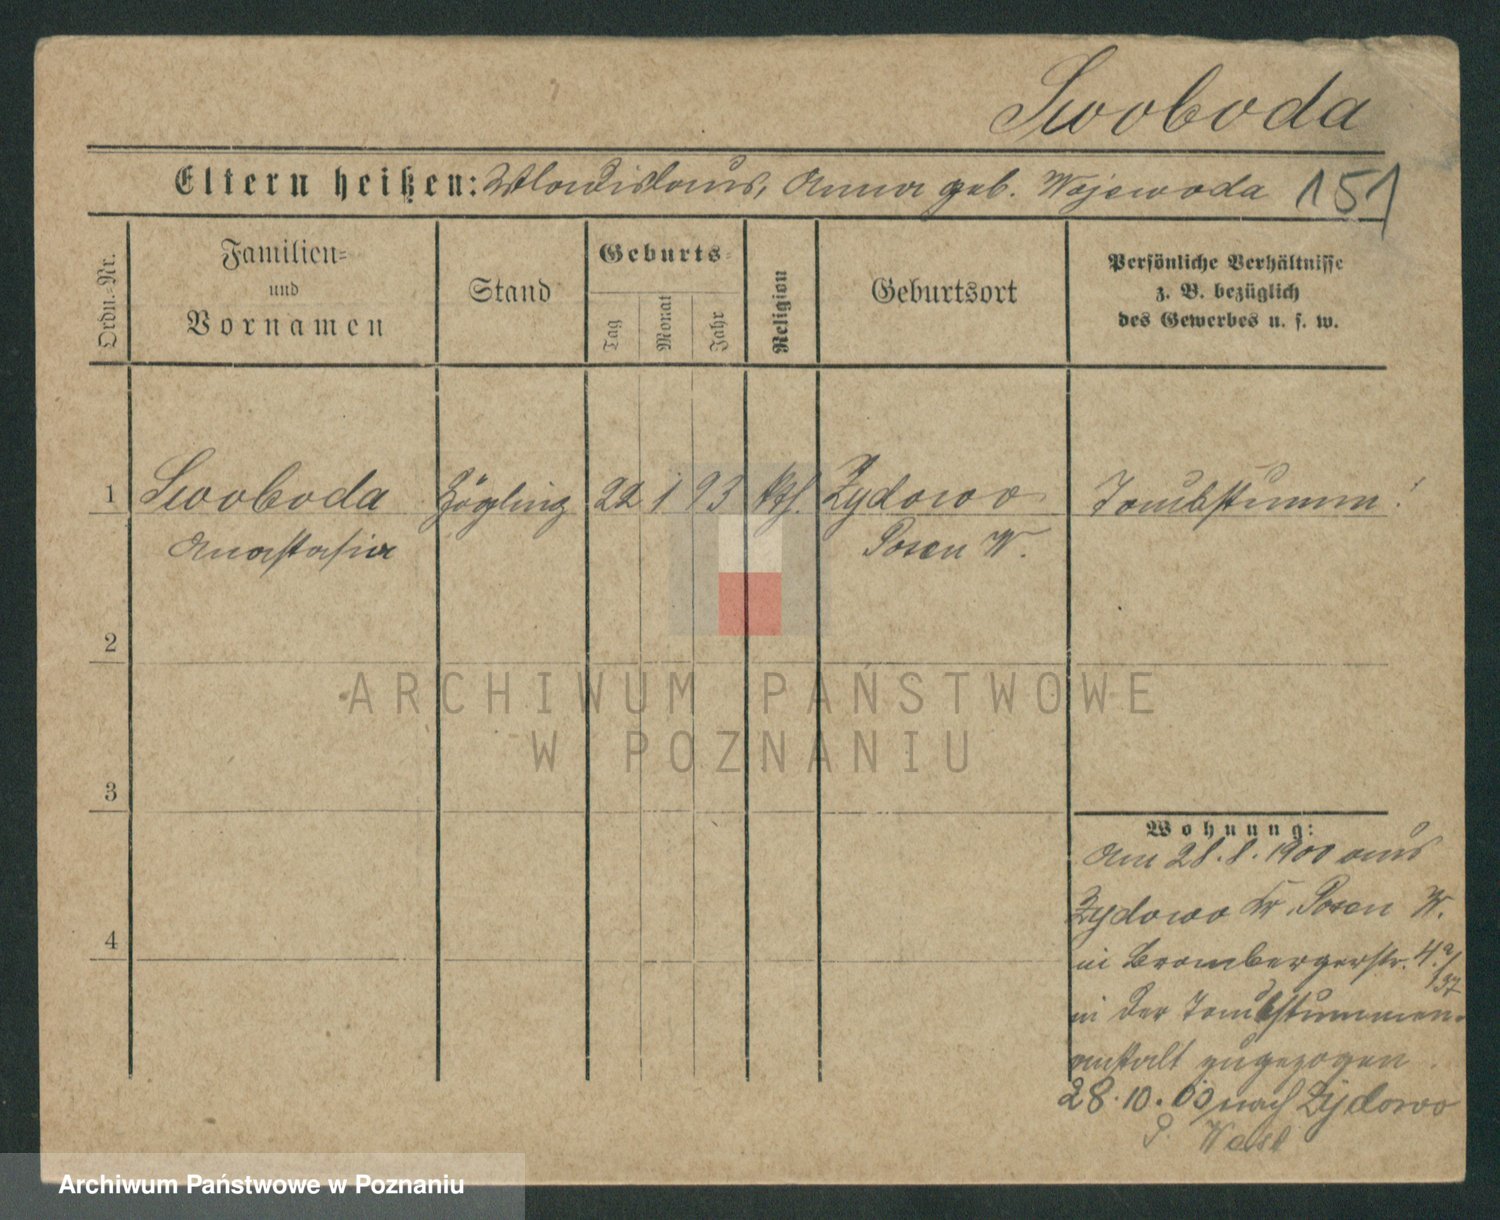 Swoboda
Eltern heißen: Wladislaus, Anna geb. Wojewoda 151
Ordn.-Nr.
Familien-
und
Vornamen
Stand
Geburts-
Tag
Monat
Jahr
Religion
Geburtsort
Persönliche Verhältnisse
z. B. bezüglich
des Gewerbes u. s. w.
1 Swoboda Zögling 22 1 93 kth. Zydowo Taubstumm!
Anastasia Posen W.
2
3
4
Wohnung:
Am 28.8.1900 aus
Zydowo Kr. Posen W.
in Brombergerstr. 4a/
137
in der Taubstummen-
anstalt zugezogen.
28.10.00 nach Zydowo
P. West
ARCHIWUM PAŃSTWOWE
W POZNANIU
Archiwum Państwowe w Poznaniu